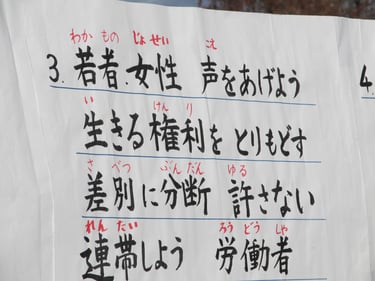 わか もの じょ せい こえ
3. 若者.女性 声をあげよう
い けん り
生きる権利を とりもどす
さ べつ ぶん だん ゆる
差別に分断 許さない
れん たい ろう どう しゃ
連帯しよう 労働者
4.